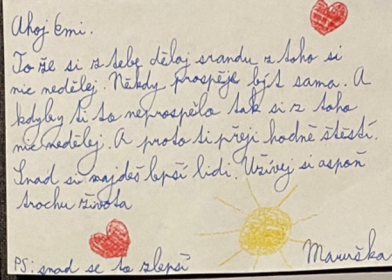 Ahoj Emi.
To že si z tebe dělaj srandu z toho si
nic nedělej. Někdy prospěje být sama. A
kdyby ti to neprospělo tak si z toho
nic nedělej. A proto ti přeji hodně štěstí.
Snad si najdeš lepší lidi. Užívej si aspoň
trochu života
PS: snad se to zlepší
Maruška